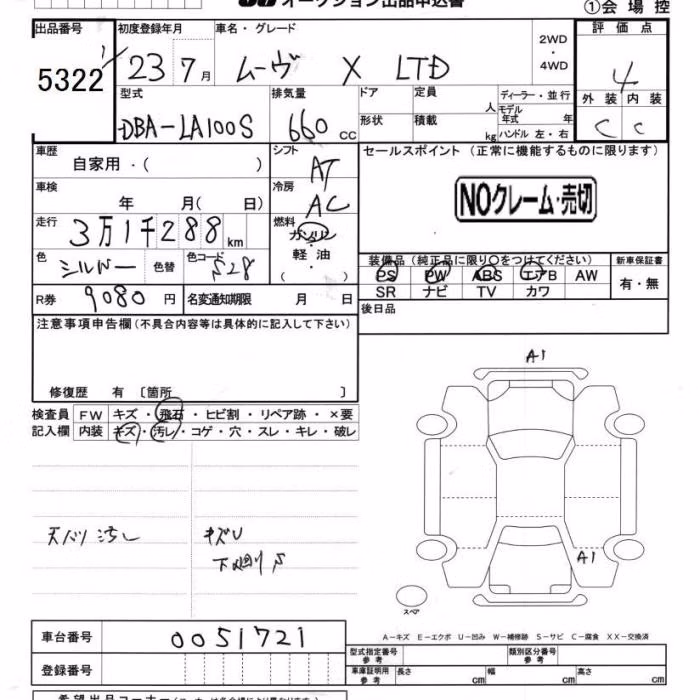 オークション出品申込書
①会場控
出品番号 初度登録年月 車名・グレード 2WD・4WD 評価点
5322 23 7月 ムーヴ X LTD 4
型式 排気量 ドア 定員 人 ディーラー・並行 外装 内装
DBA-LA100S 660cc 形状 積載 kg モデル年式 年 ハンドル 左・右 C C
車歴 自家用・( ) シフト AT セールスポイント (正常に機能するものに限ります)
車検 年 月( 日) 冷房 AC NOクレーム・売切
走行 3万1千288km 燃料 ガソリン・軽油・( )
色 シルバー 色替 色コード S28
装備品 (純正品に限り○をつけてください) 新車保証書
PS PW ABS エアB AW 有・無
SR ナビ TV カワ
R券 9080円 名変通知期限 月 日 後日品
注意事項申告欄 (不具合内容等は具体的に記入して下さい)
修復歴 有 〔箇所 〕
検査員 FW キズ・飛石・ヒビ割・リペア跡・×要
記入欄 内装 キズ・汚レ・コゲ・穴・スレ・キレ・破レ
A1
天バリ汚レ キズU
下廻りS
A1
スペア
車台番号 0051721
A-キズ E-エクボ U-凹み W-補修跡 S-サビ C-腐食 XX-交換済
登録番号 型式指定番号 参考 類別区分番号 参考
車庫証明用 参考 長さ cm 幅 cm 高さ cm